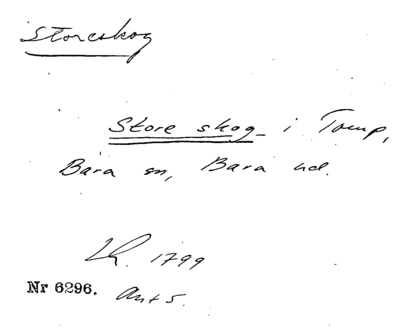 Storeskog
Store skog i Torup,
Bara sn, Bara hd.
LK. 1799
Nr 6296. Ant 5.